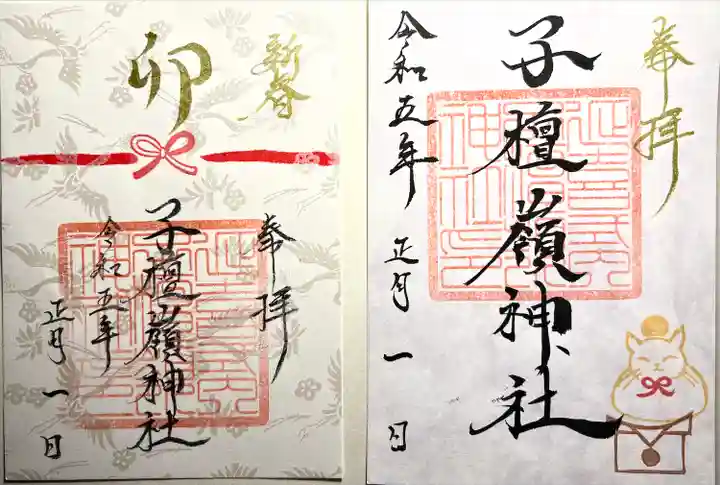 新春
卯
奉拝
子檀嶺神社
令和五年
正月一日
奉拝
子檀嶺神社
令和五年
正月一日